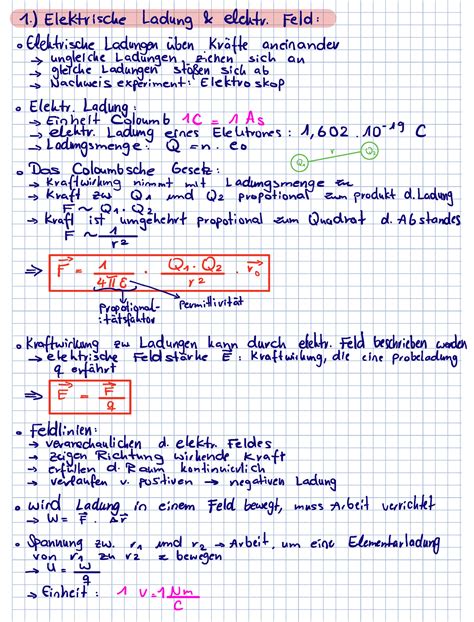 1.) Elektrische Ladung & elektr. Feld:
• Elektrische Ladungen üben Kräfte aneinander
→ ungleiche Ladungen ziehen sich an
→ gleiche Ladungen stoßen sich ab
→ Nachweisexperiment: Elektroskop
• Elektr. Ladung:
→ Einheit Coloumb 1C = 1 As
→ elektr. Ladung eines Elektrones: 1,602 · 10⁻¹⁹ C
→ Ladungsmenge: Q = n · e₀
Q₁ r Q₂
• Das Coloumbsche Gesetz:
→ Kraftwirkung nimmt mit Ladungsmenge zu
→ Kraft zw Q₁ und Q₂ propotional zum produkt d. Ladung
F ~ Q₁ · Q₂
→ Kraft ist umgekehrt propotional zum Quadrat d. Abstandes
F ~ 1/r²
⇒ F⃗ = 1/4πε · Q₁ · Q₂/r² · r⃗₀
Propotional-
itätsfaktor
Permittivität
• Kraftwirkung zw Ladungen kann durch elektr. Feld beschrieben werden
→ elektrische Feldstärke E⃗: Kraftwirkung, die eine probeladung
q erfährt
⇒ E⃗ = F⃗/q
• Feldlinien:
→ veranschaulichen d. elektr. Feldes
→ zeigen Richtung wirkende Kraft
→ erfüllen d. Raum kontinuierlich
→ verlaufen v. positiven → negativen Ladung
• wird Ladung in einem Feld bewegt, muss Arbeit verrichtet
→ W = F⃗ · Δr⃗
• Spannung zw. r₁ und r₂ → Arbeit, um eine Elementarladung
von r₁ zu r₂ z bewegen
→ U = W/q
→ Einheit: 1 V = 1 Nm/C